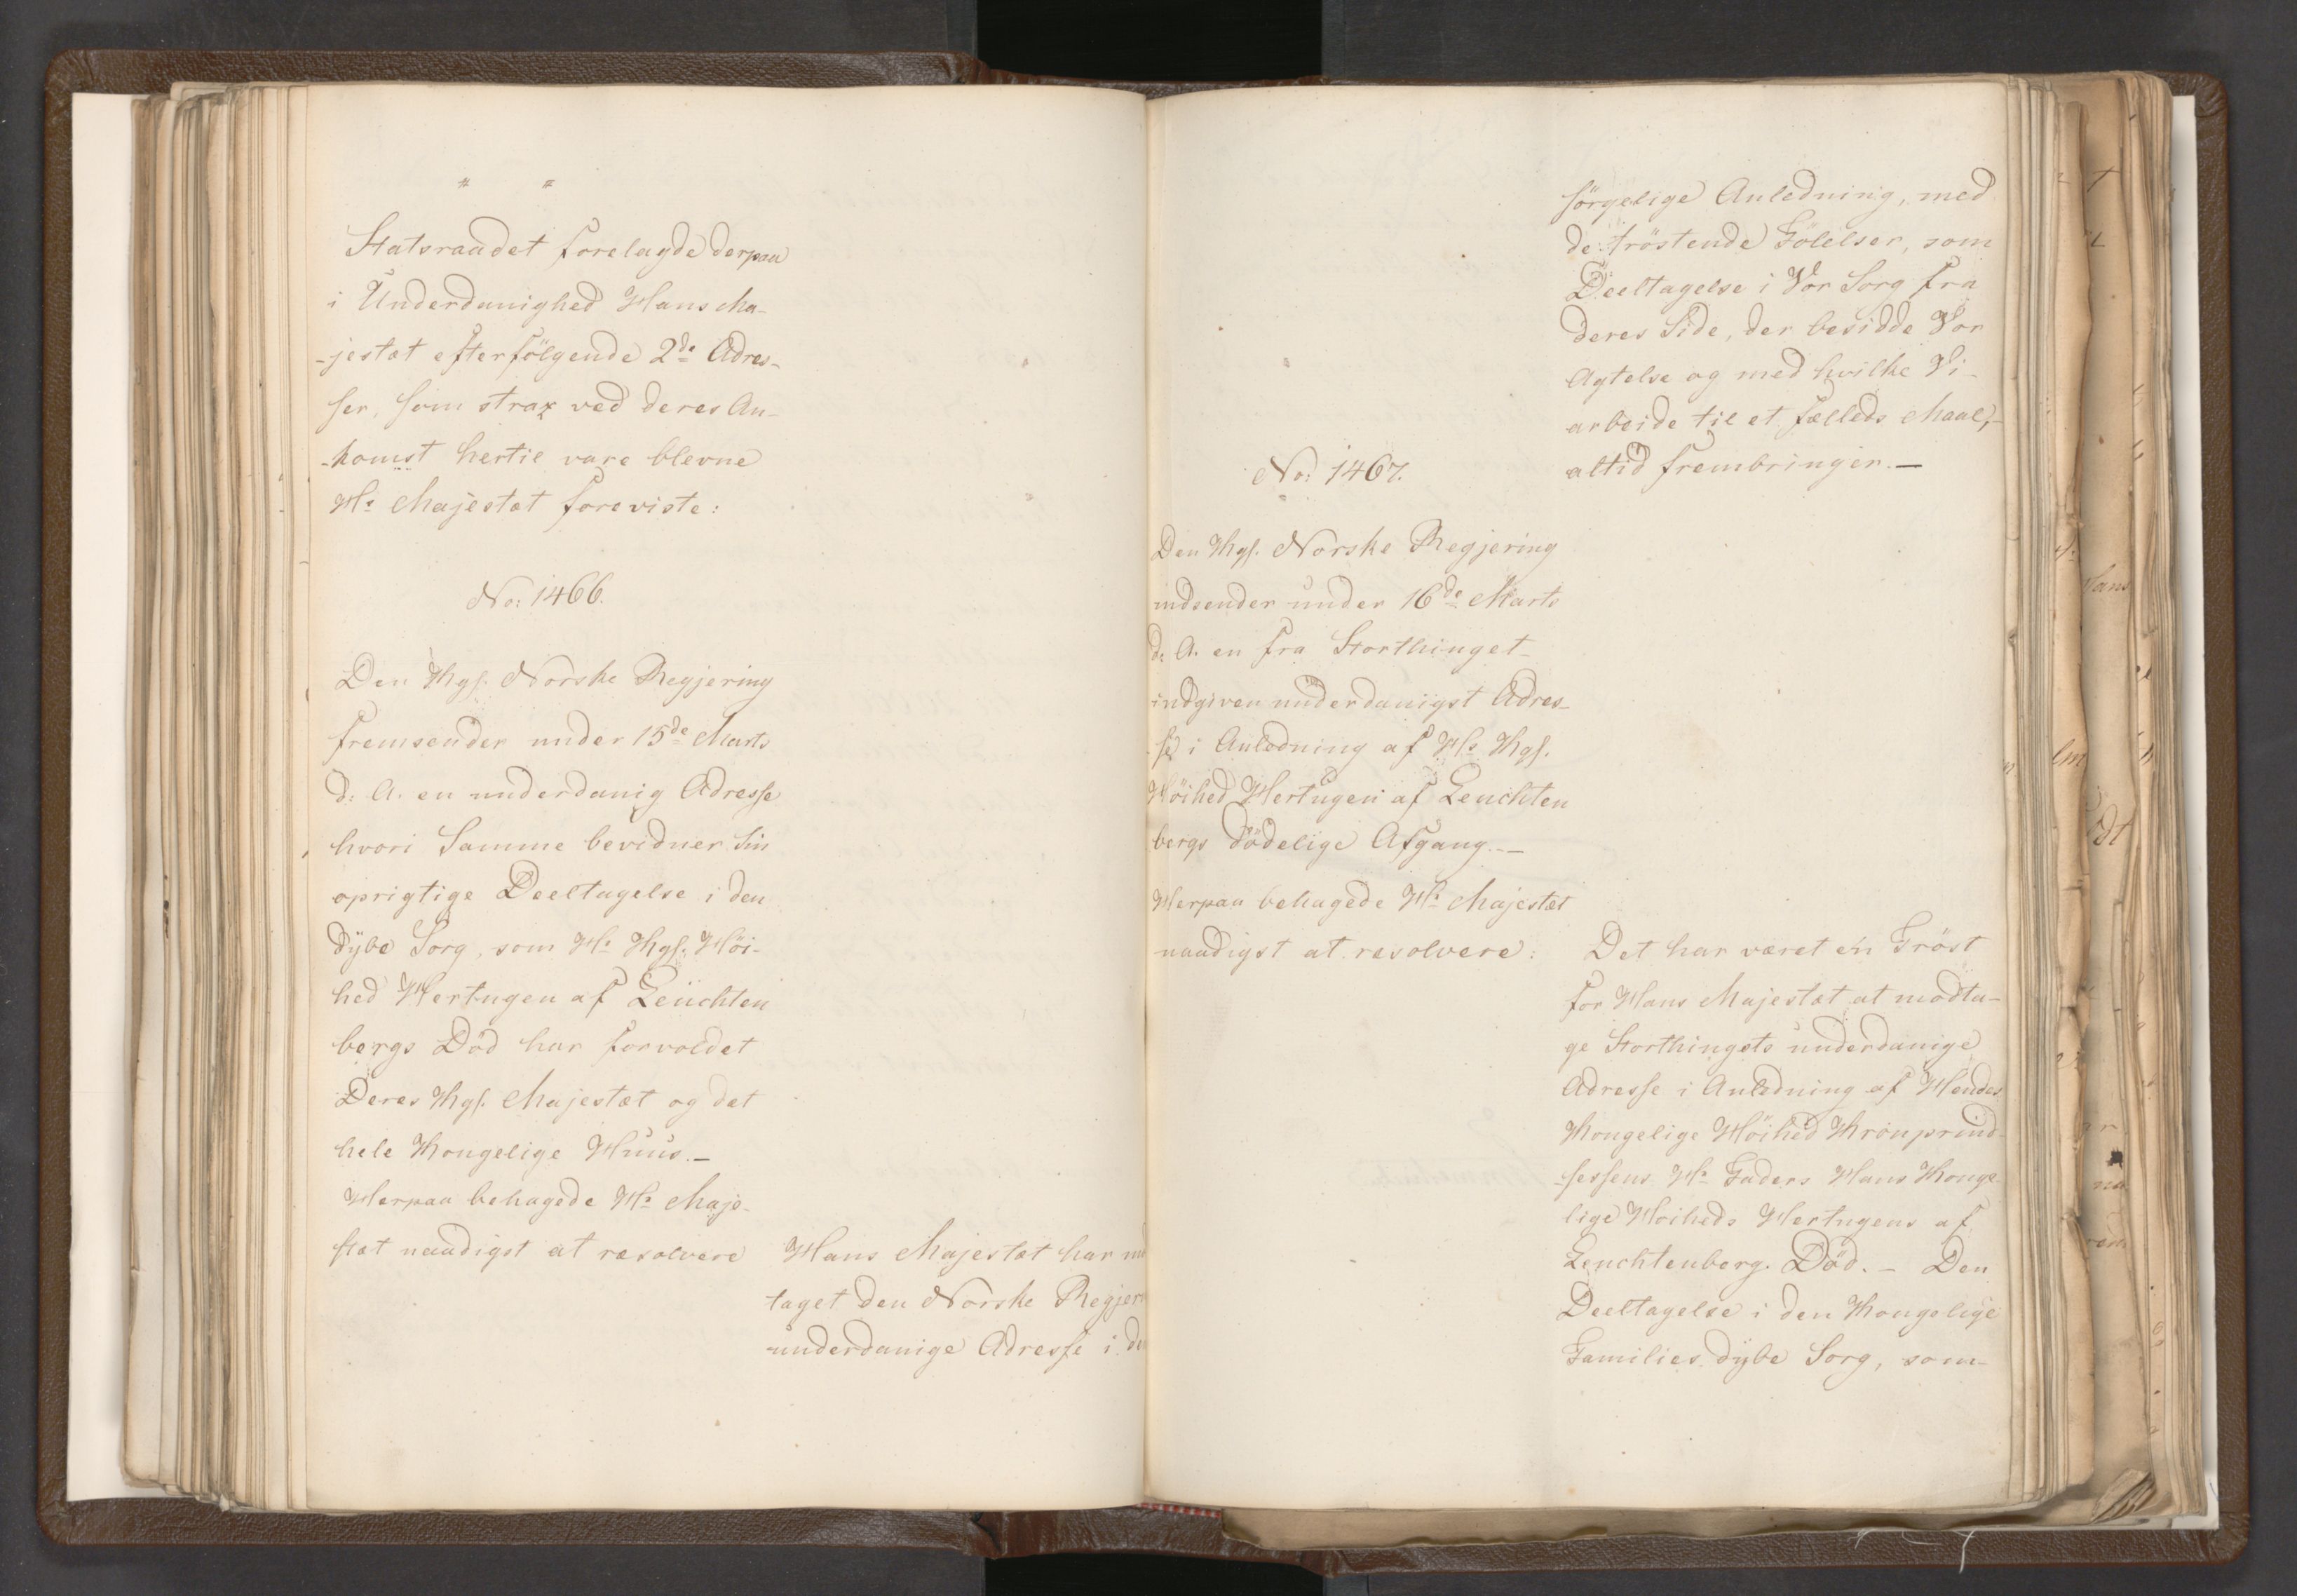 Statsraadet forelagde derpaa
i Underdanighed Hans Ma-
-jestæt efterfölgende 2de Adres-
ser, som strax ved deres An-
-komst hertil vare blevne
Hs Majestæt foreviste:
No: 1466.
Den Kgl. Norske Regjering
fremsender under 15de Marts
d: A. en underdanig Adresse
hvori Samme bevidner Sin
oprigtige Deeltagelse i den
dybe Sorg, som Hs Kgl. Höi-
hed Hertugen af Leuchten
bergs Död har forvoldet
Deres Kgl. Majestæt og det
hele Kongelige Huus.-
Herpaa behagede Hs Maje-
stæt naadigst at resolvere
Hans Majestæt har
taget den Norske
underdanige Adresse i
sörgelige Anledning, med
de tröstende Fölelser, som
Deeltagelse i Vor Sorg fra
deres Side, der besidde Vor
Agtelse og med hvilke Vi
arbeide til et fælleds Maal,
altid frembringer.-
No: 1467.
Den Kgl. Norske Regjering
indsender under 16de Marts
d: A. en fra Storthinget
indgiven underdanigst Adres-
se i Anledning af Hs Kgl.
Höihed Hertugen af Leuchten
bergs dödelige Afgang.-
Herpaa behagede Hs Majestæt
naadigst at resolvere:
Det har været en Tröst
for Hans Majestæt at modta-
ge Storthingets underdanige
Adresse i Anledning af Hendes
Kongelige Höihed Kronprind-
-sessens Hr Faders Hans Konge-
lige Höiheds Hertugens af
Leuchtenberg. Död. - Den
Deeltagelse i den Kongelige
Families dybe Sorg, som